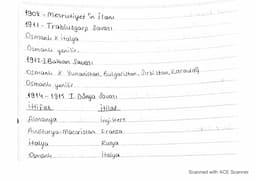 1908 - Meşrutiyet'in İlanı
1911 - Trablusgarp Savaşı
Osmanlı X İtalya
Osmanlı yenilir.
1912 I. Balkan Savaşı
Osmanlı X Yunanistan, Bulgaristan, Sırbistan, Karadağ
Osmanlı yenilir.
1914 - 1915 I. Dünya Savaşı
İttifak İtilaf
Almanya İngiltere
Avusturya-Macaristan Fransa
İtalya Rusya
Osmanlı İtalya
Scanned with ACE Scanner